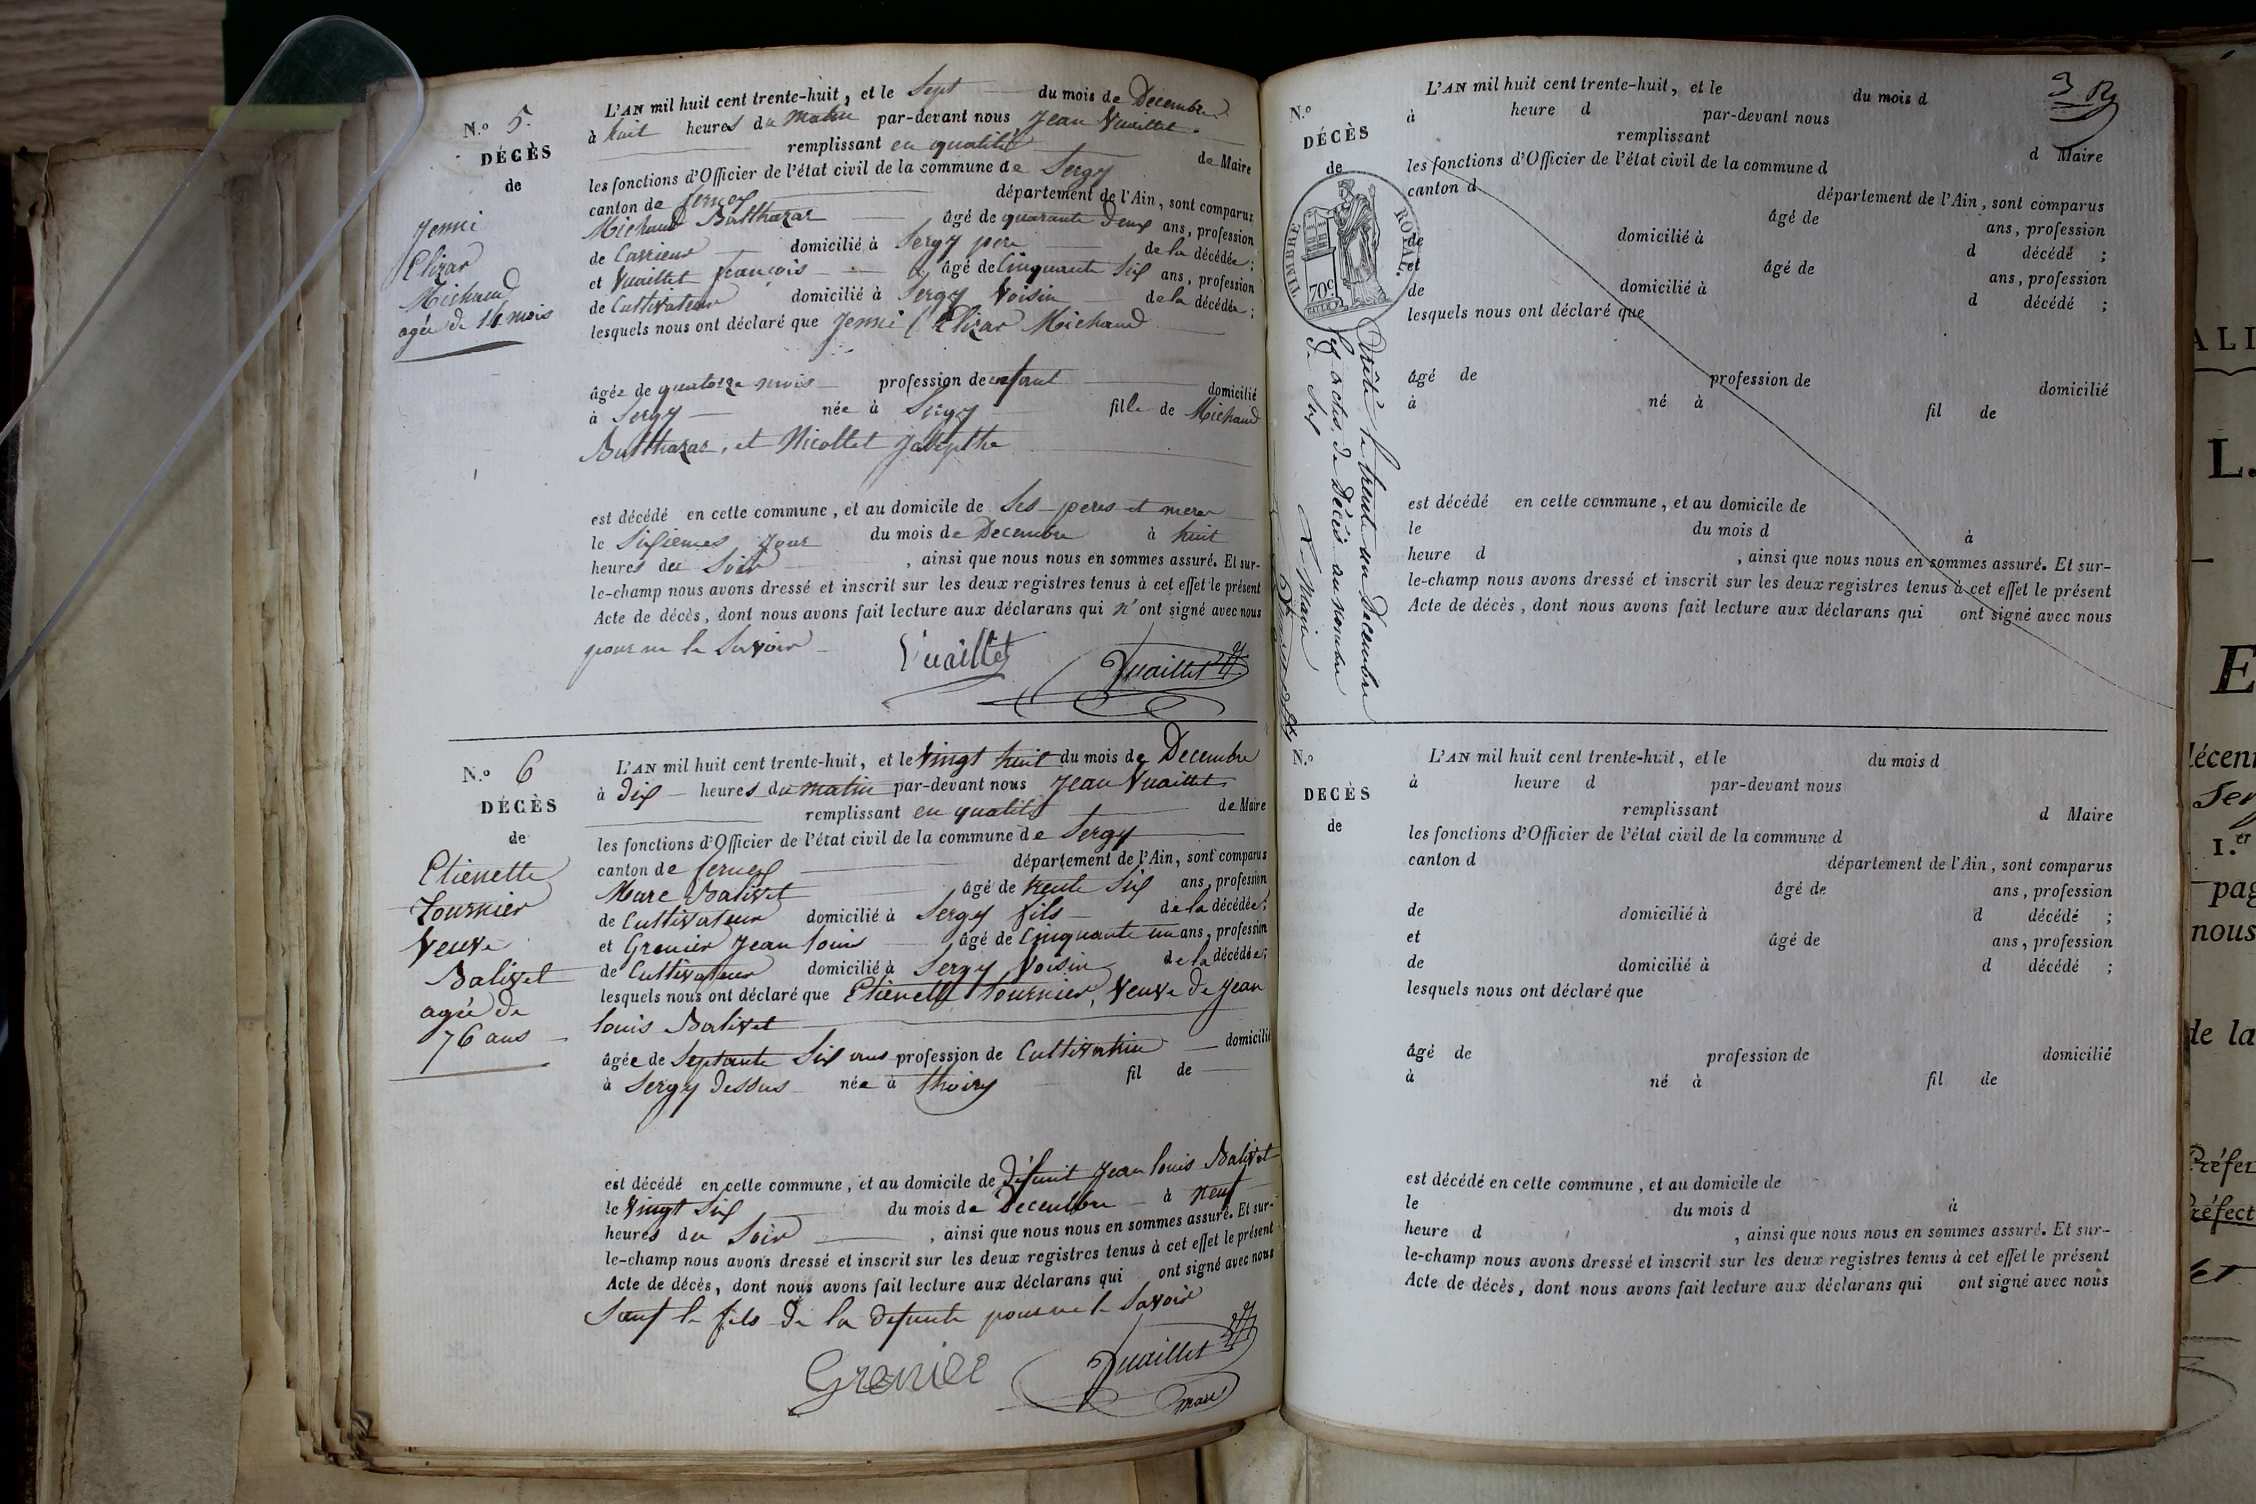 N.o 5.
DÉCÈS
de
Jenni
Elizar
Michaud
agée de 14 mois
L'AN mil huit cent trente-huit, et le Sept du mois de Decembre
à huit heures du matin par-devant nous Jean Vuaillet.
remplissant en qualité de Maire
les fonctions d'Officier de l'état civil de la commune de Sergy
canton de ferney département de l'Ain, sont comparus
Michaud Balthazar âgé de quarante deux ans, profession
de Carrieur domicilié à Sergy pere de la décédée;
et Vuaillet françois âgé de Cinquante Six ans, profession
de Cultivateur domicilié à Sergy Voisin de la décédée;
lesquels nous ont déclaré que Jenni Elizar Michaud
âgée de quatorze mois profession de enfant domicilié
à Sergy née à Sergy fille de Michaud
Balthazar, et Nicollet Josepthe
est décédé en cette commune, et au domicile de Ses peres et mere
le Sixiemes jour du mois de Decembre à huit
heures du Soir, ainsi que nous nous en sommes assuré. Et sur-
le-champ nous avons dressé et inscrit sur les deux registres tenus à cet effet le présent
Acte de décès, dont nous avons fait lecture aux déclarans qui n'ont signé avec nous
pour ne le Savoir
Vuaillet Vuaillet
N.o 6
DÉCÈS
de
Etienette
Tournier
Veuve
Balivet
agée de
76 ans
L'AN mil huit cent trente-huit, et le Vingt huit du mois de Decembre
à dix heures du matin par-devant nous Jean Vuaillet
remplissant en qualité de Maire
les fonctions d'Officier de l'état civil de la commune de Sergy
canton de ferney département de l'Ain, sont comparus
Marc Balivet âgé de trente Six ans, profession
de Cultivateur domicilié à Sergy fils de la décédée;
et Grenier Jean louis âgé de Cinquante un ans, profession
de Cultivateur domicilié à Sergy Voisin de la décédée;
lesquels nous ont déclaré que Etienette Tournier, Veuve de Jean
louis Balivet
âgée de Septante Six ans profession de Cultivatrice domicilié
à Sergy dessus née à thoiry fil de
est décédé en cette commune, et au domicile de défunit Jean louis Balivet
le Vingt Six du mois de Decembre à neuf
heures du Soir, ainsi que nous nous en sommes assuré. Et sur-
le-champ nous avons dressé et inscrit sur les deux registres tenus à cet effet le présent
Acte de décès, dont nous avons fait lecture aux déclarans qui ont signé avec nous
Sauf le fils de la defunte pour ne le Savoir
Grenier Vuaillet
maire
3
N.o
DÉCÈS
de
TIMBRE ROYAL.
70c
L'AN mil huit cent trente-huit, et le du mois d
à heure d par-devant nous
remplissant d Maire
les fonctions d'Officier de l'état civil de la commune d
canton d département de l'Ain, sont comparus
âgé de ans, profession
de domicilié à d décédé ;
et âgé de ans, profession
de domicilié à d décédé ;
lesquels nous ont déclaré que
âgé de profession de domicilié
à né à fil de
est décédé en cette commune, et au domicile de
le du mois d à
heure d , ainsi que nous nous en sommes assuré. Et sur-
le-champ nous avons dressé et inscrit sur les deux registres tenus à cet effet le présent
Acte de décès, dont nous avons fait lecture aux déclarans qui ont signé avec nous
Arrêté le trente un Decembre
et actes de Décès au nombre
de Six
Le Maire
N.o
DECÈS
de
L'AN mil huit cent trente-huit, et le du mois d
à heure d par-devant nous
remplissant d Maire
les fonctions d'Officier de l'état civil de la commune d
canton d département de l'Ain, sont comparus
âgé de ans, profession
de domicilié à d décédé ;
et âgé de ans, profession
de domicilié à d décédé ;
lesquels nous ont déclaré que
âgé de profession de domicilié
à né à fil de
est décédé en cette commune, et au domicile de
le du mois d à
heure d , ainsi que nous nous en sommes assuré. Et sur-
le-champ nous avons dressé et inscrit sur les deux registres tenus à cet effet le présent
Acte de décès, dont nous avons fait lecture aux déclarans qui ont signé avec nous
L.
E
1.er
pag
nous
de la